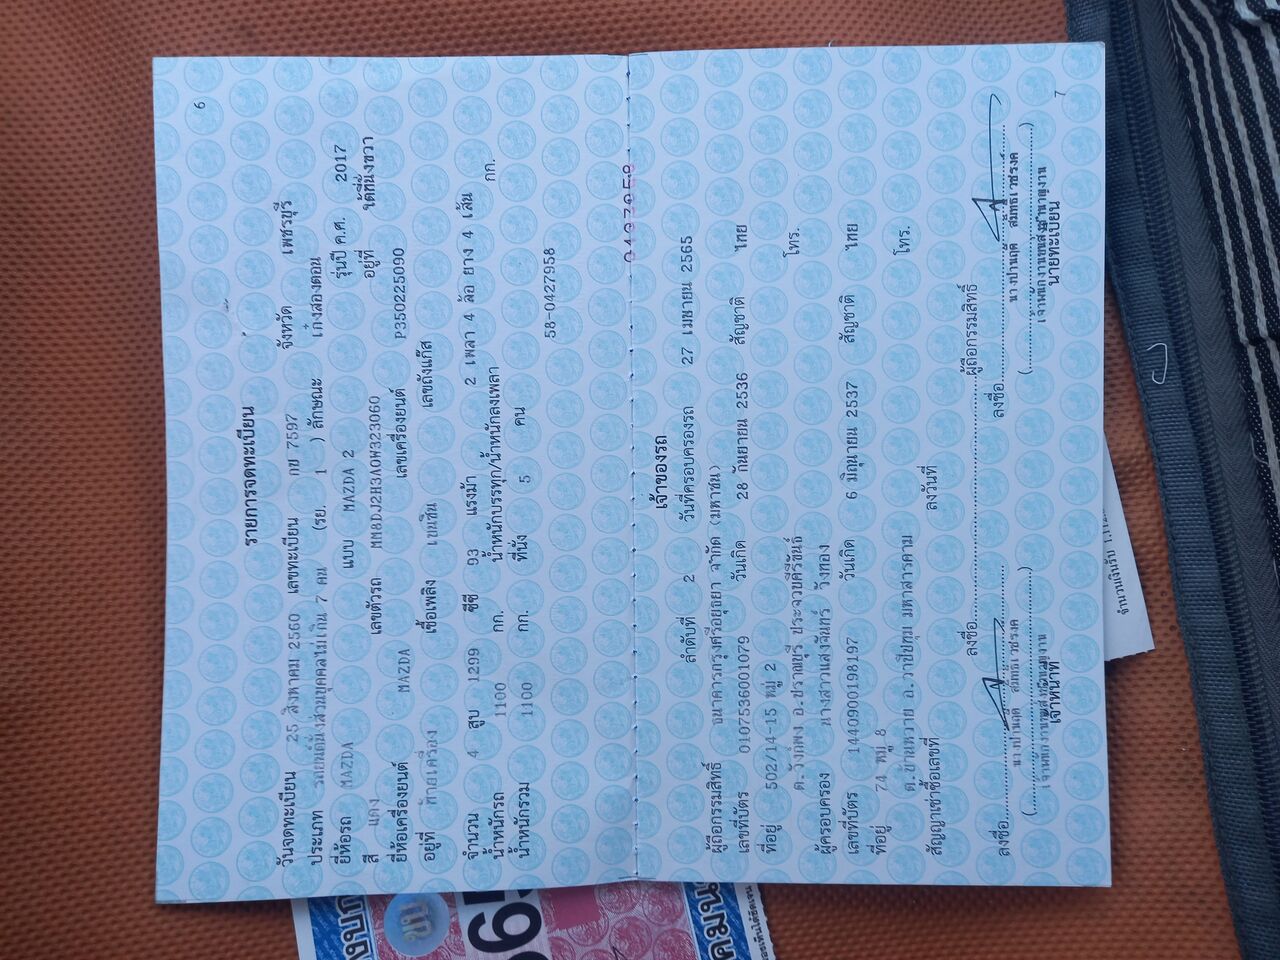 6
รายการจดทะเบียน
วันจดทะเบียน 25 สิงหาคม 2560 เลขทะเบียน กข 7597 จังหวัด เพชรบุรี
ประเภท รถยนต์นั่งส่วนบุคคลไม่เกิน 7 คน (รย. 1 ) ลักษณะ เก๋งสองตอน
ยี่ห้อรถ MAZDA แบบ MAZDA 2 รุ่นปี ค.ศ. 2017
สี แดง เลขตัวรถ MM8DJ2H3A0W323060 อยู่ที่ ใต้ที่นั่งขวา
ยี่ห้อเครื่องยนต์ MAZDA เลขเครื่องยนต์ P350225090
อยู่ที่ ท้ายเครื่อง เชื้อเพลิง เบนซิน เลขถังแก๊ส
จำนวน 4 สูบ 1299 ซีซี 93 แรงม้า 2 เพลา 4 ล้อ ยาง 4 เส้น
น้ำหนักรถ 1100 กก. น้ำหนักบรรทุก/น้ำหนักลงเพลา กก.
น้ำหนักรวม 1100 กก. ที่นั่ง 5 คน
58-0427958
เจ้าของรถ
ลำดับที่ 2 วันที่ครอบครองรถ 27 เมษายน 2565
ผู้ถือกรรมสิทธิ์ ธนาคารกรุงศรีอยุธยา จำกัด (มหาชน)
เลขที่บัตร 0107536001079 วันเกิด 28 กันยายน 2536 สัญชาติ ไทย
ที่อยู่ 502/14-15 หมู่ 2 โทร.
ต.วังก์พง อ.ปราณบุรี ประจวบคีรีขันธ์
ผู้ครอบครอง นางสาวแสงจันทร์ วังทอง
เลขที่บัตร 1440900198197 วันเกิด 6 มิถุนายน 2537 สัญชาติ ไทย
ที่อยู่ 74 หมู่ 8 โทร.
ต.ขามหวาย อ.วาปีปทุม มหาสารคาม
สัญญาเช่าซื้อเลขที่ ลงวันที่
ลงชื่อ ผู้ถือกรรมสิทธิ์
ลงชื่อ ลงชื่อ
เจ้าหน้าที่ นายทะเบียน
7
จำนวนเงินรับ